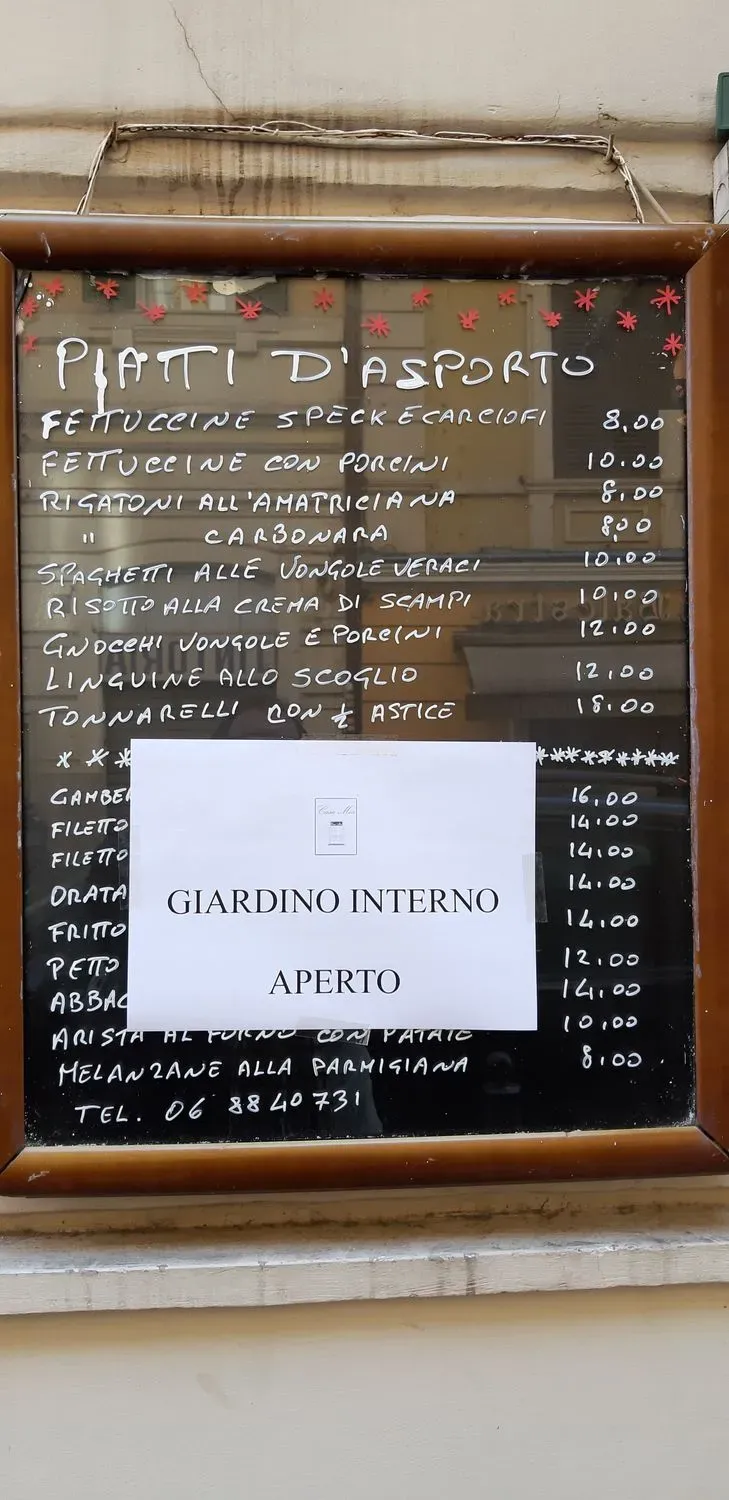 PIATTI D'ASPORTO
FETTUCCINE SPECK E CARCIOFI 8,00
FETTUCCINE CON PORCINI 10.00
RIGATONI ALL'AMATRICIANA 8,00
" CARBONARA 8,00
SPAGHETTI ALLE VONGOLE VERACI 10,00
RISOTTO ALLA CREMA DI SCAMPI 10,00
GNOCCHI VONGOLE E PORCINI 12.00
LINGUINE ALLO SCOGLIO 12,00
TONNARELLI CON ½ ASTICE 18.00
* * * **********
16,00
FILETTO 14.00
FILETTO 14.00
ORATA 14.00
FRITTO 14,00
PETTO 12.00
14,00
ARISTA AL FORNO CON PATATE 10,00
MELANZANE ALLA PARMIGIANA 8,00
TEL. 06 8840731
Casa Mia
GIARDINO INTERNO
APERTO